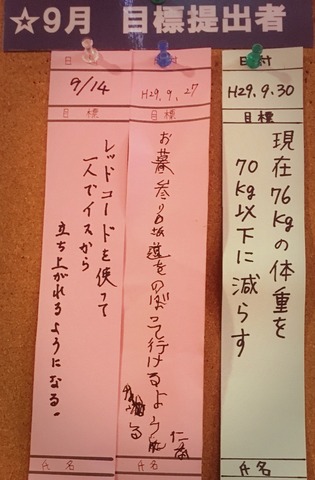 ☆9月 目標提出者
日付
H29.9.30
目標
現在76kgの体重を
70kg以下に減らす
氏名
日付
H29.9.27
目標
お墓参り
坂道をのぼって行けるよう
る
氏名
日
9/14
目標
レッドコードを使って
一人でイスから
立ち上がれるようになる。
氏名